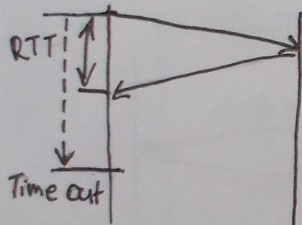 RTT
Time out